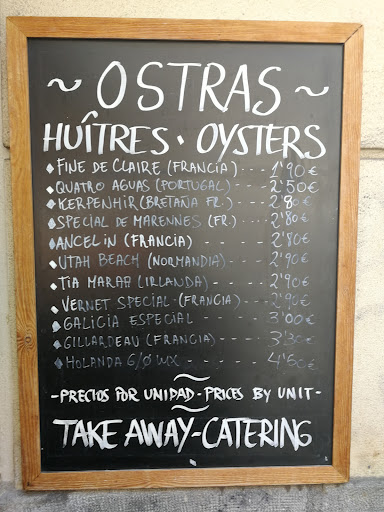 ~ OSTRAS ~
HUÎTRES · OYSTERS
◆ FINE DE CLAIRE (FRANCIA) --- 1'90€
◆ QUATRO AGUAS (PORTUGAL) --- 2'50€
◆ KERPENHIR (BRETAÑA FR.) --- 2'80€
◆ SPECIAL DE MARENNES (FR.) --- 2'80€
◆ ANCELIN (FRANCIA) ------ 2'80€
◆ UTAH BEACH (NORMANDIA) ---- 2'90€
◆ TIA MARAA (IRLANDA) ----- 2'90€
◆ VERNET SPECIAL (FRANCIA) --- 2'90€
◆ GALICIA ESPECIAL ------ 3'00€
◆ GILLARDEAU (FRANCIA) ---- 3'30€
◆ HOLANDA 6/0 LUX ------ 4'60€
~
-PRECIOS POR UNIDAD - PRICES BY UNIT-
~
TAKE AWAY-CATERING